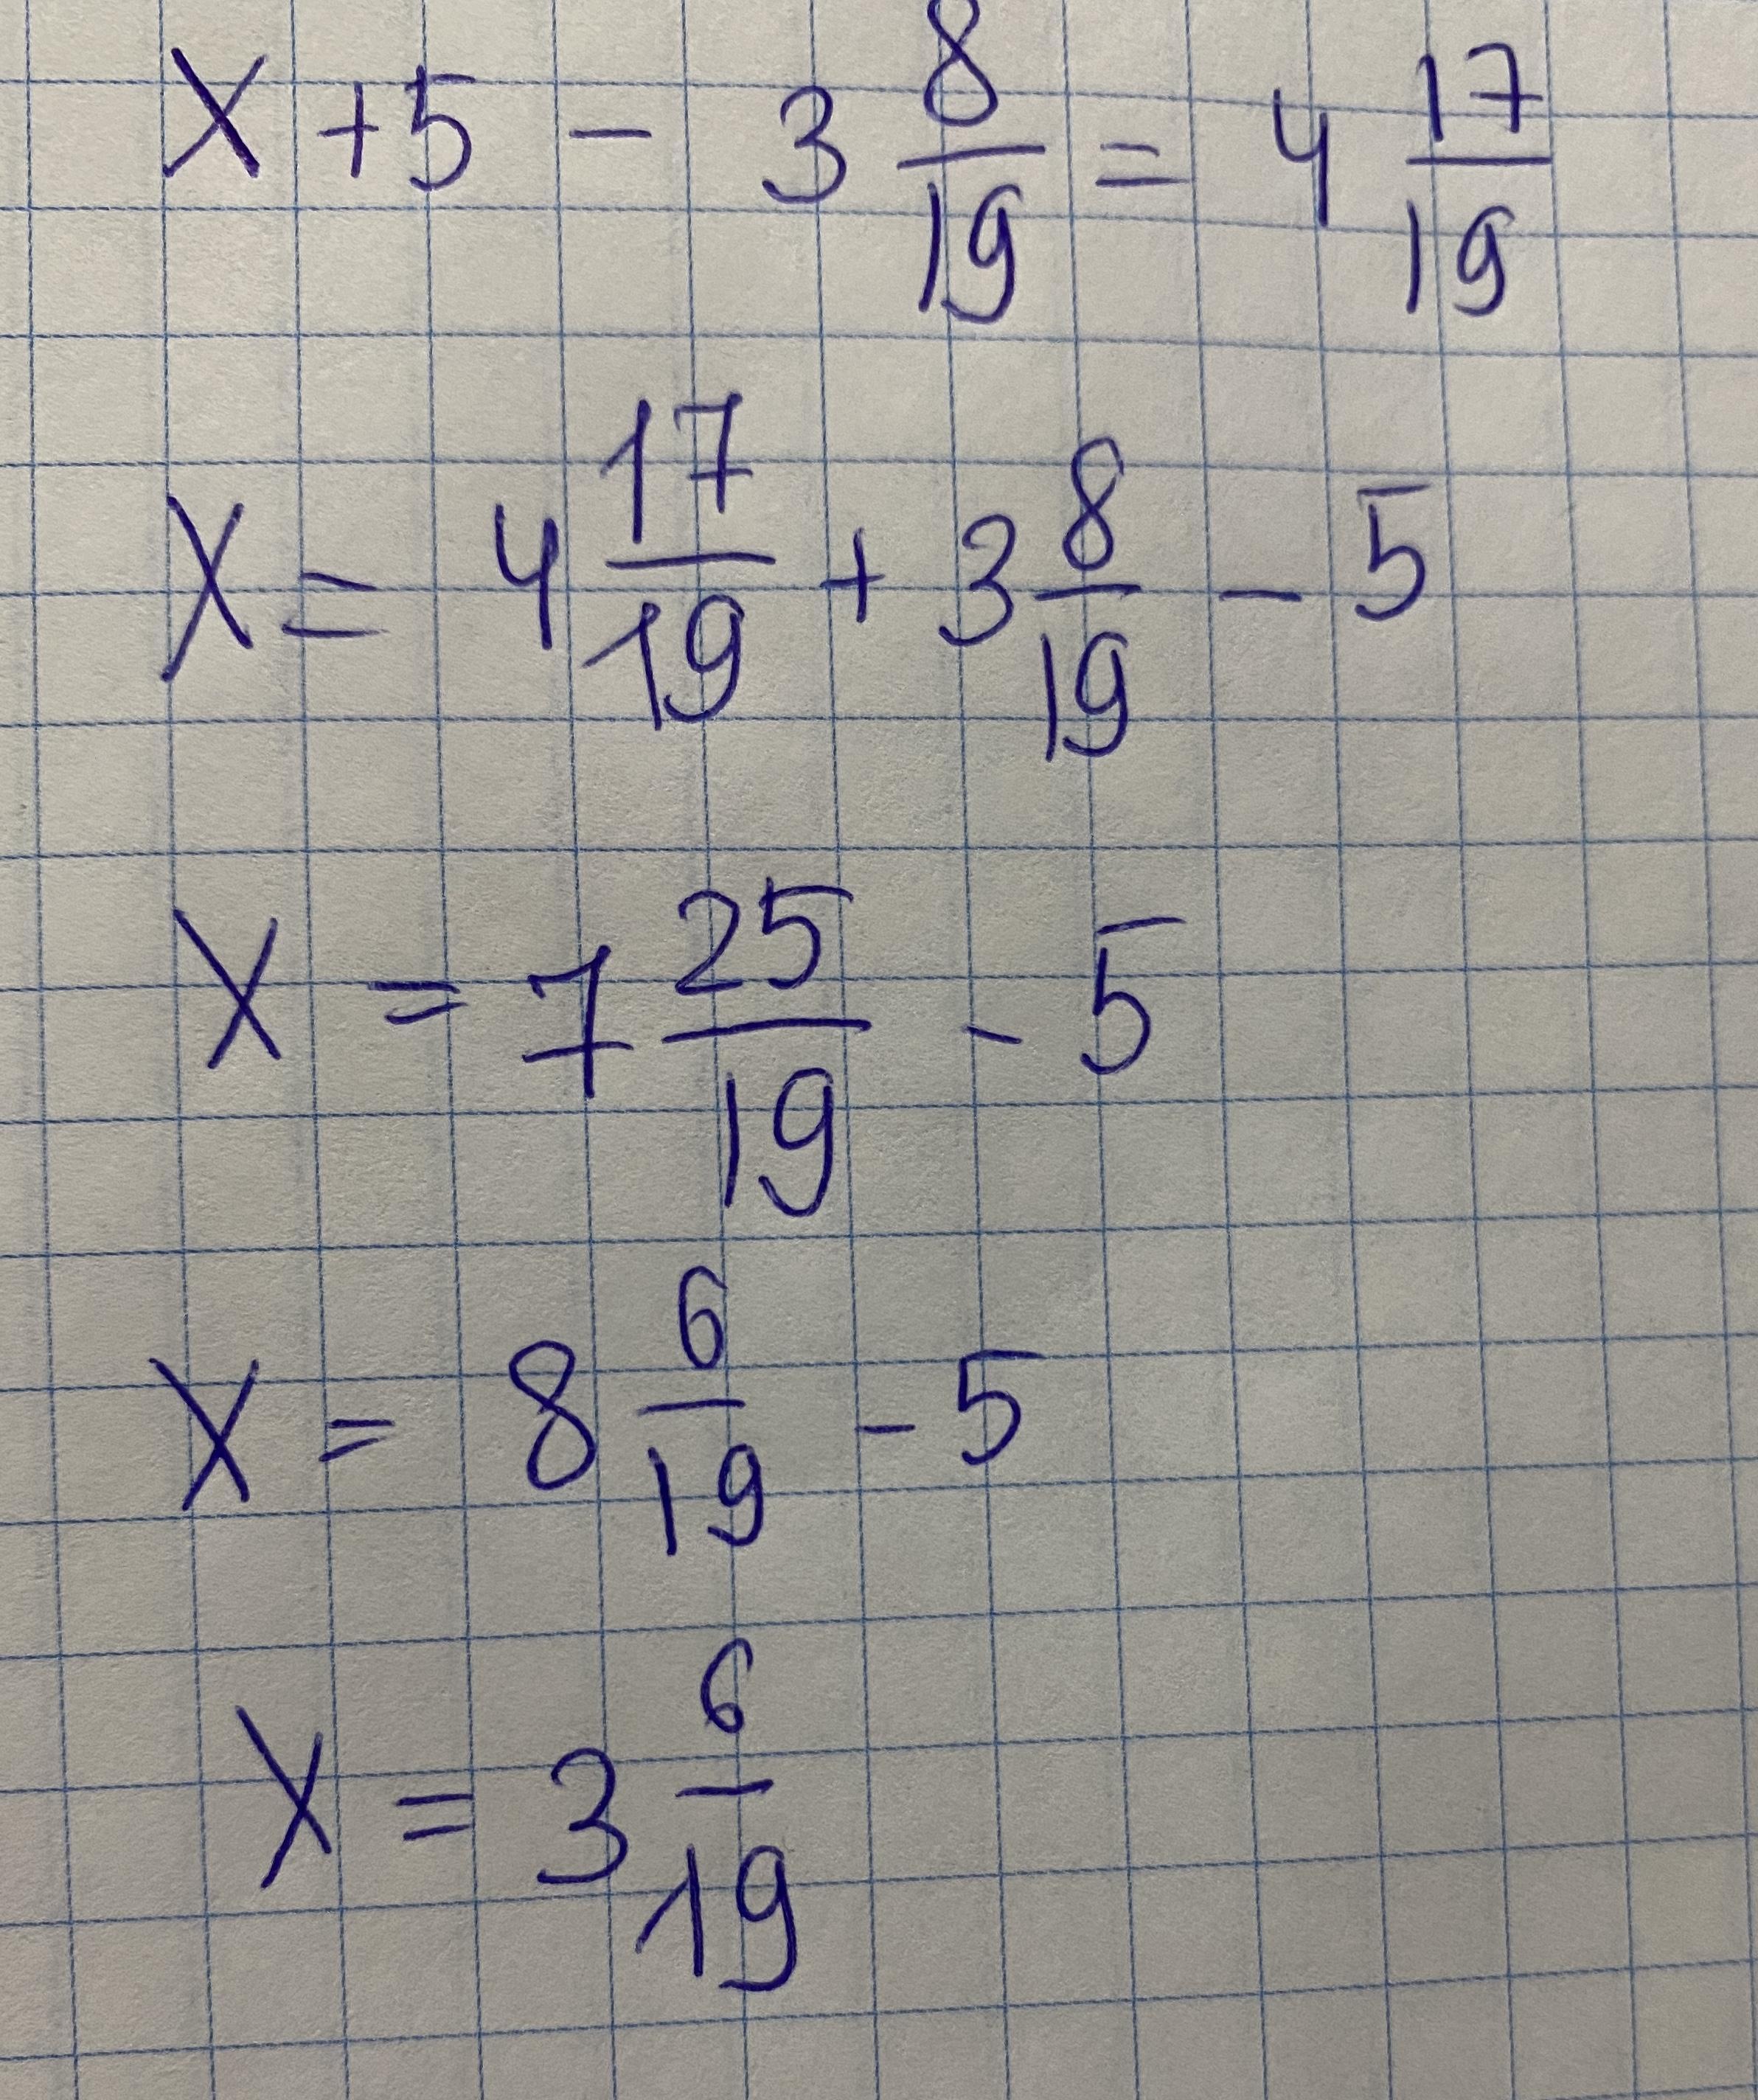 X + 5 - 3 8/19 = 4 17/19
X = 4 17/19 + 3 8/19 - 5
X = 7 25/19 - 5
X = 8 6/19 - 5
X = 3 6/19